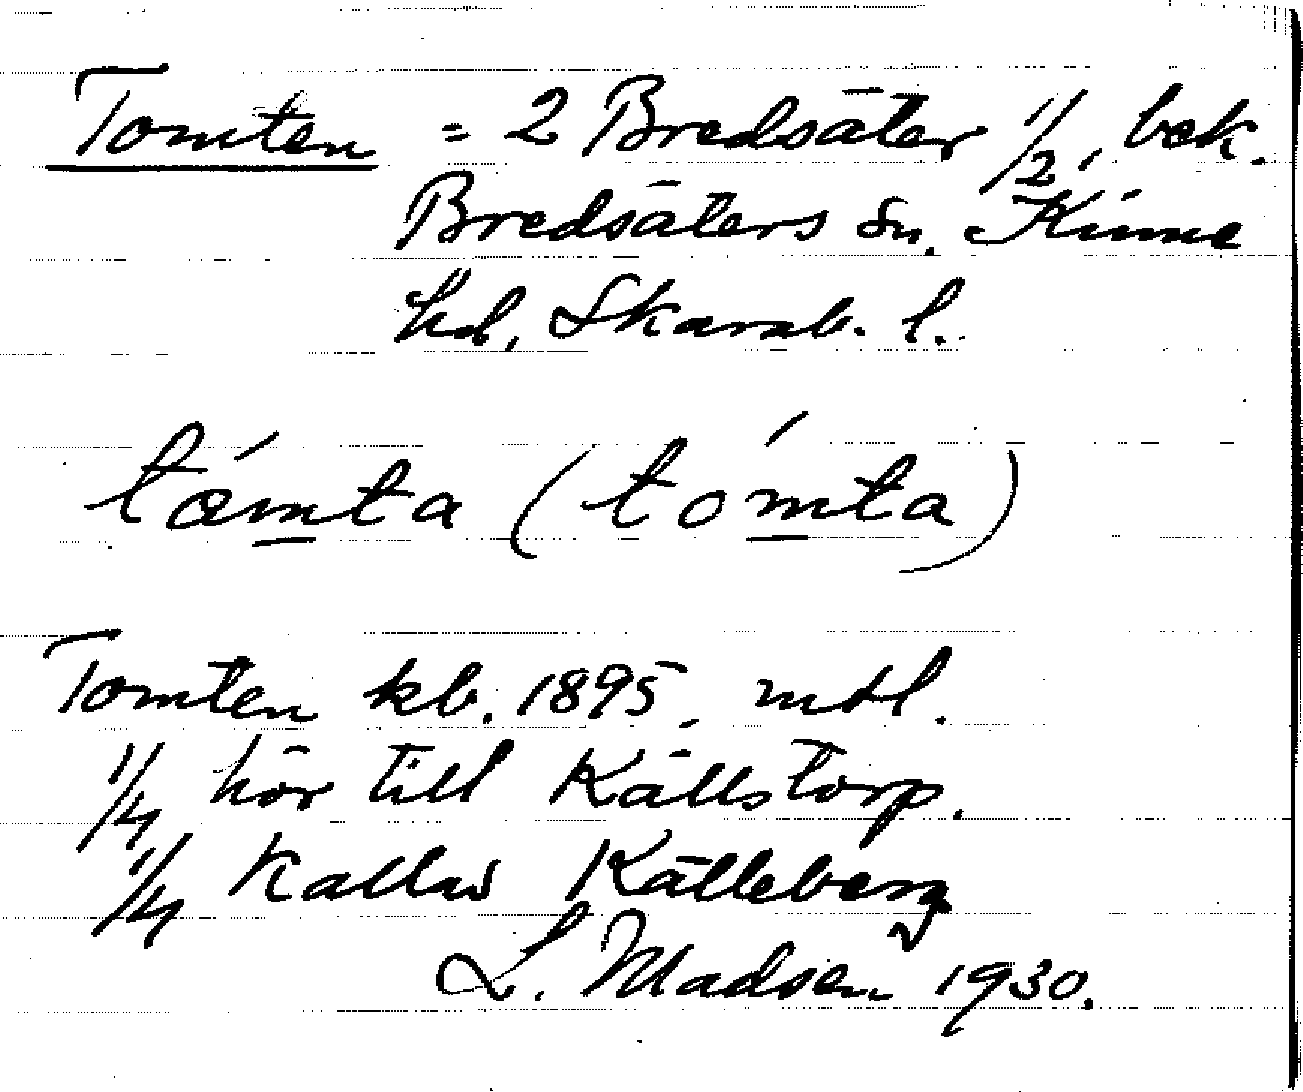 Tomten = 2 Bredsäter 1/2, bek.
Bredsäters sn. Kinne
hd, Skarab. l.
tǿmta (tómta)
Tomten kb. 1895, mtl.
1/4 hör till Källstorp.
1/4 kallas Källeberg
L. Madsen 1930.